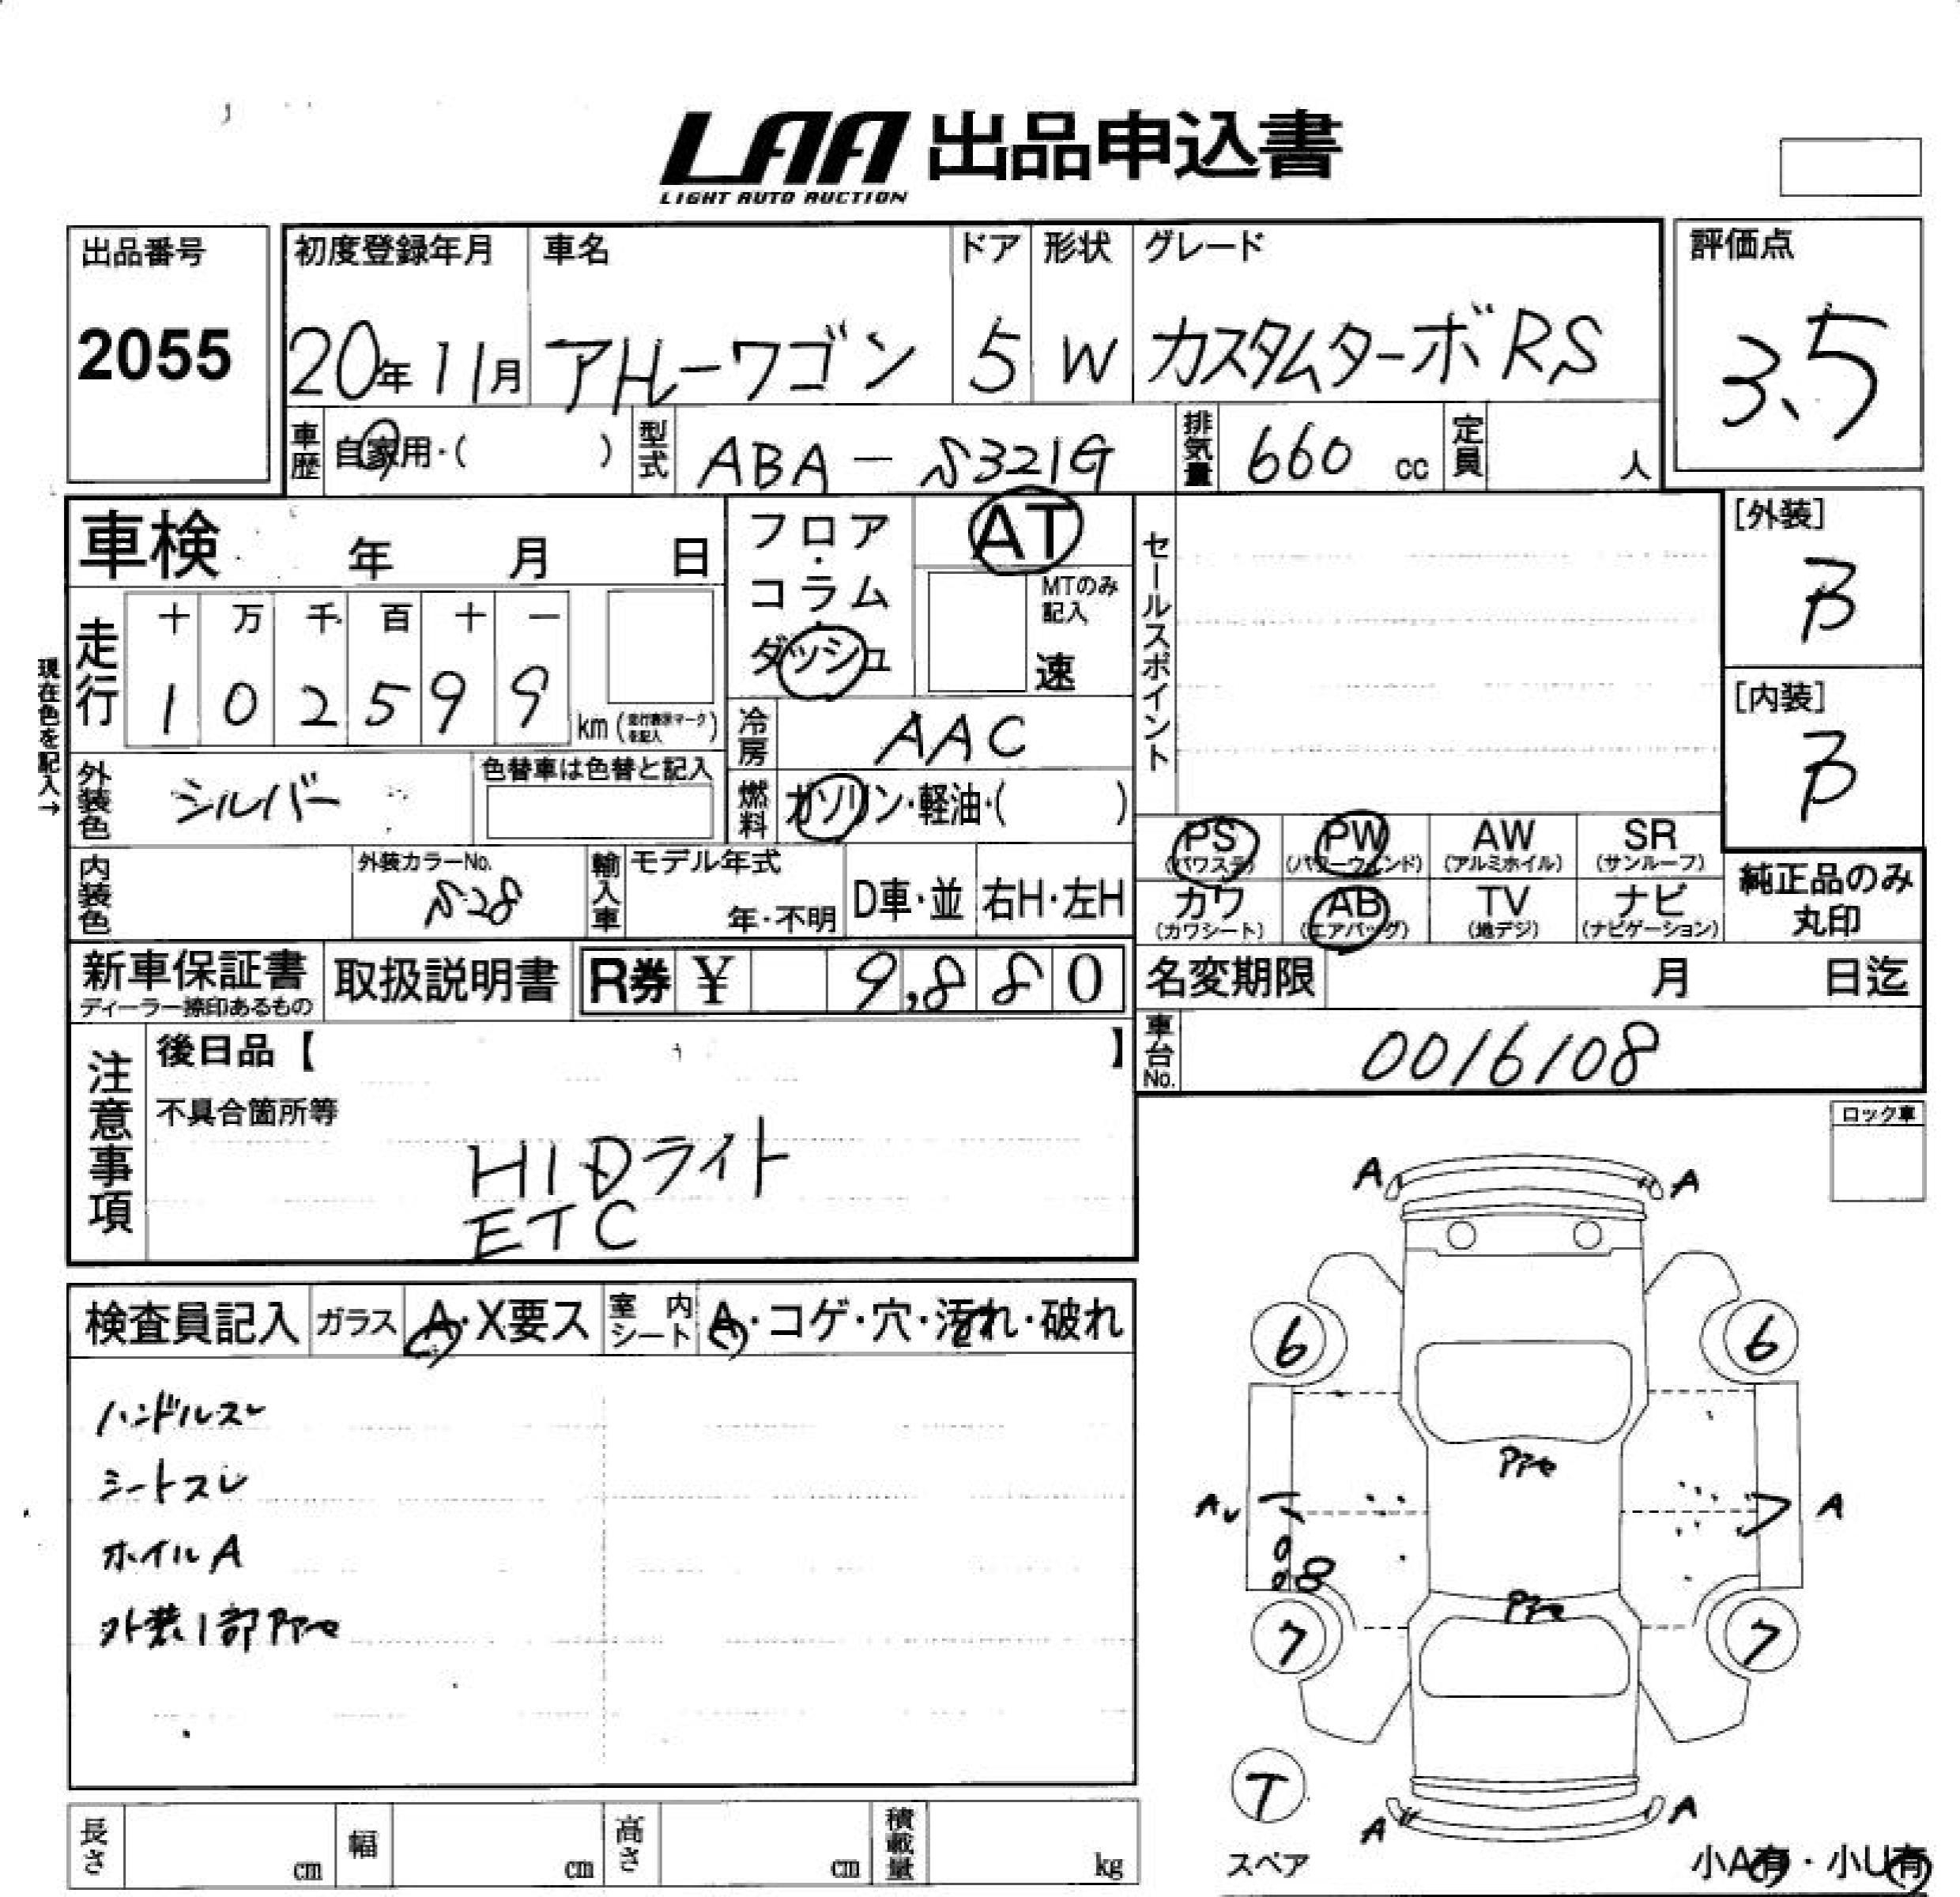 LAA 出品申込書
LIGHT AUTO AUCTION
出品番号
2055
初度登録年月
20年11月
車名
アトレーワゴン
ドア
5
形状
W
グレード
カスタムターボRS
評価点
3.5
車歴
自家用・( )
型式
ABA-S321G
排気量
660 cc
定員
人
車検 年 月 日
走行
十 万 千 百 十 一
1 0 2 5 9 9
km (走行表示マークを記入)
現在色を記入→
フロア・コラム・ダッシュ
AT
MTのみ記入
速
冷房
AAC
燃料
ガソリン・軽油・( )
外装色
シルバー
色替車は色替と記入
内装色
外装カラーNo.
S28
輸入車
モデル年式
年・不明
D車・並
右H・左H
セールスポイント
[外装]
B
[内装]
B
PS
(パワステ)
PW
(パワーウィンド)
AW
(アルミホイル)
SR
(サンルーフ)
カワ
(カワシート)
AB
(エアバッグ)
TV
(地デジ)
ナビ
(ナビゲーション)
純正品のみ
丸印
新車保証書
ディーラー捺印あるもの
取扱説明書
R券 ¥ 9,880
名変期限 月 日迄
車台No.
0016108
注意事項
後日品【 】
不具合箇所等
HIDライト
ETC
ロック車
検査員記入
ガラス
A・X要ス
室内シート
A・コゲ・穴・汚れ・破れ
ハンドルスレ
シートスレ
ホイルA
外装1部Pアセ
A A
6 6
Pアセ
A A
8
Pアセ
7 7
T
スペア
A A
小A有・小U有
長さ cm
幅 cm
高さ cm
積載量 kg